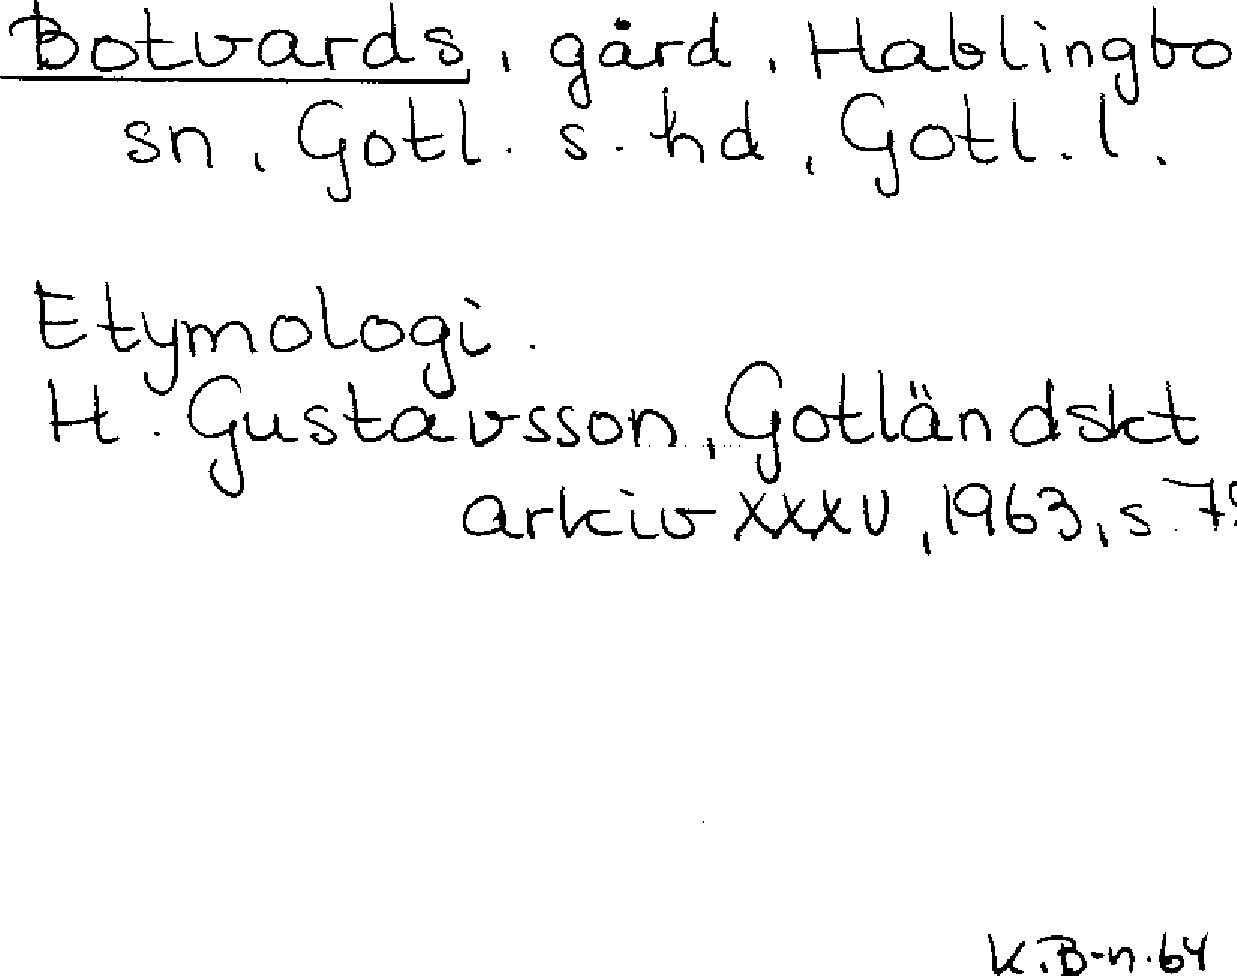 Botvards, gård, Hablingbo
sn, Gotl. s. hd, Gotl. l.
Etymologi.
H. Gustavsson, Gotländskt
arkiv XXXV, 1963, s.
K.B-n. 64